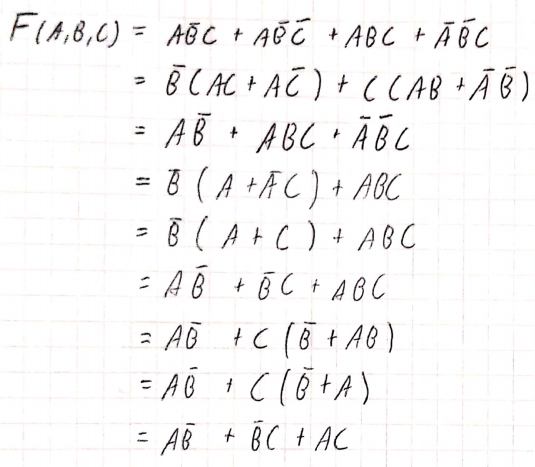 F(A,B,C) = AB̄C + AB̄C̄ + ABC + ĀB̄C
= B̄(AC + AC̄) + C(AB + ĀB̄)
= AB̄ + ABC + ĀB̄C
= B̄(A + ĀC) + ABC
= B̄(A + C) + ABC
= AB̄ + B̄C + ABC
= AB̄ + C(B̄ + AB)
= AB̄ + C(B̄ + A)
= AB̄ + B̄C + AC